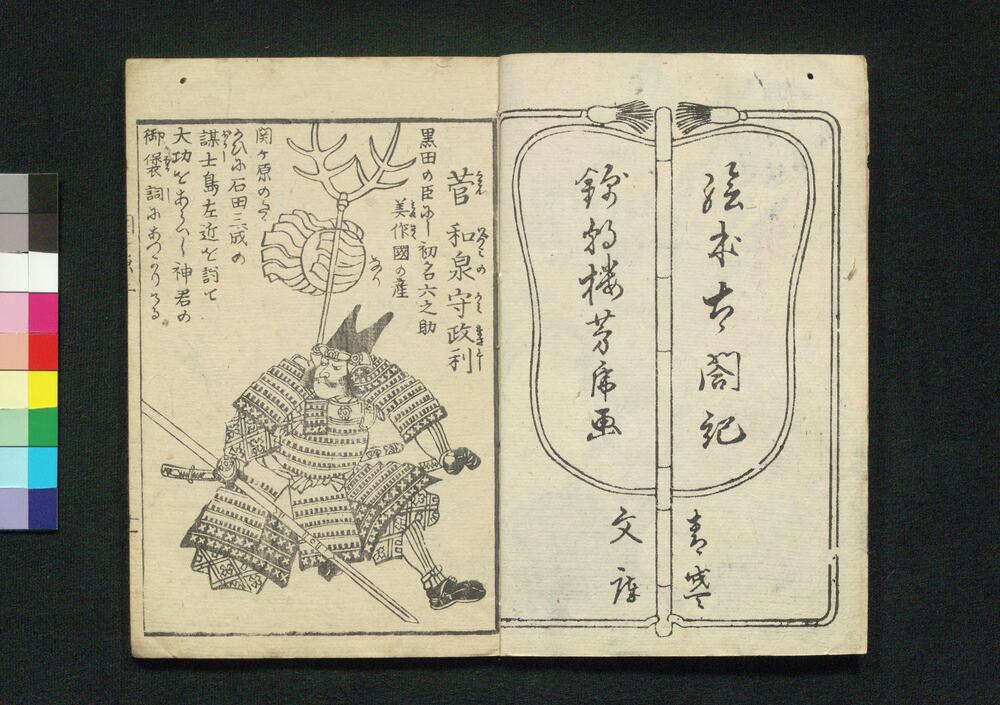 絵本太閤記
錦朝楼芳虎画
青盛
文庫
菅和泉守政利
黒田の臣にし初名六之助
美作國の産
なり
関ヶ原の
石田三成の
謀士島左近を討て
大功をあらハし神君の
御褒詞にあつかりたる